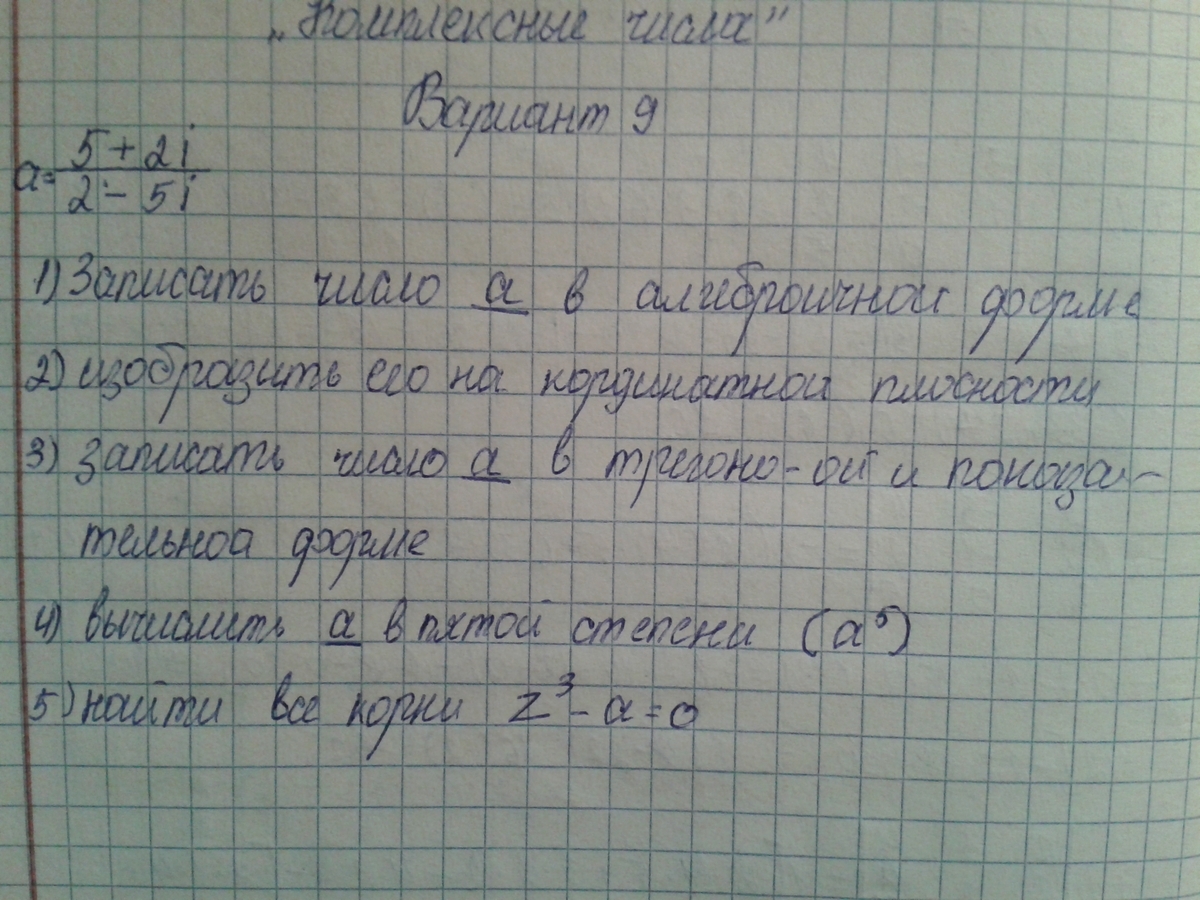 „Комплексные числа"
Вариант 9
a = 5 + 2i / 2 - 5i
1) Записать число a в алгиброичной форме
2) изобразить его на кординатной плоскости
3) записать число a в тригоно-ой и показа-
тельной форме
4) вычислить a в пятой степени (a⁵)
5) найти все корни z³ - a = 0